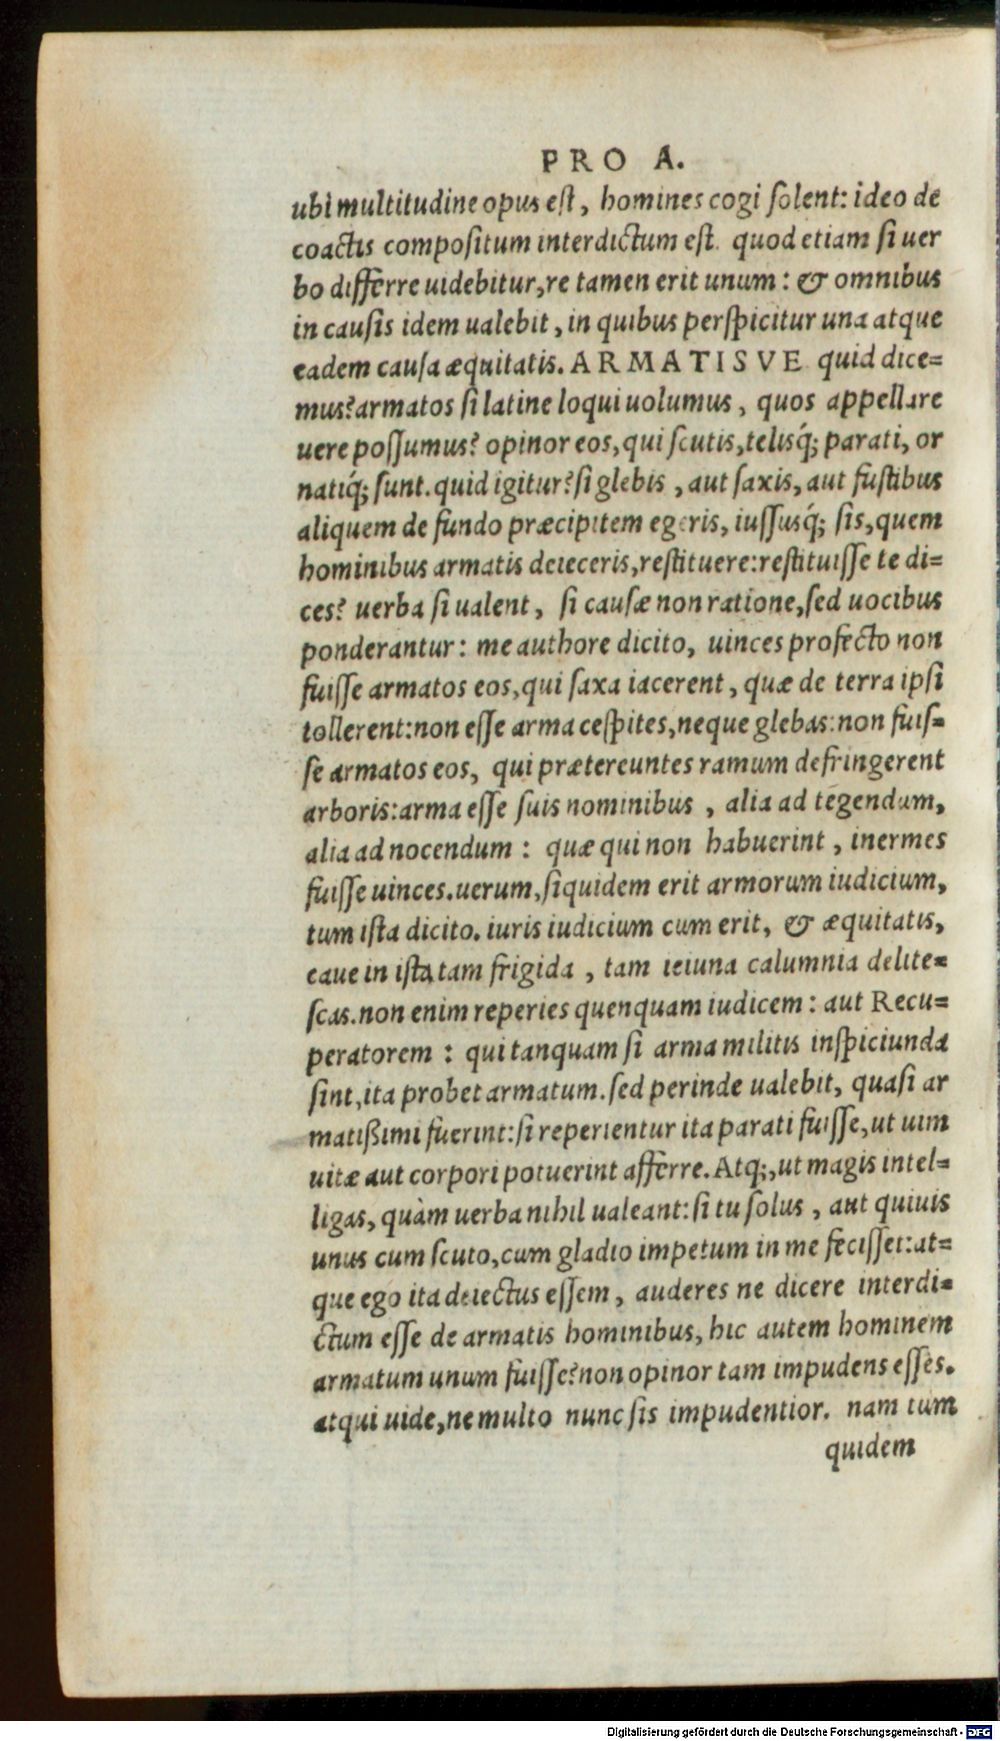 PRO A.
ubi multitudine opus eſt, homines cogi ſolent: ideo de
coactis compoſitum interdictum eſt. quod etiam ſi uer
bo differre uidebitur,re tamen erit unum: & omnibus
in cauſis idem ualebit, in quibus perſpicitur una atque
eadem cauſa æquitatis. ARMATISVE quid dice=
mus?armatos ſi latine loqui uolumus, quos appellare
uere poſſumus? opinor eos,qui ſcutis,telisq́; parati, or
natiq́; ſunt.quid igitur?ſi glebis, aut ſaxis, aut fuſtibus
aliquem de fundo præcipitem egeris, iuſſusq́; ſis,quem
hominibus armatis deieceris,reſtituere:reſtituiſſe te di=
ces? uerba ſi ualent, ſi cauſæ non ratione,ſed uocibus
ponderantur: me authore dicito, uinces profecto non
fuiſſe armatos eos,qui ſaxa iacerent, quæ de terra ipſi
tollerent:non eſſe arma ceſpites,neque glebas:non fuiſ=
ſe armatos eos, qui prætereuntes ramum defringerent
arboris:arma eſſe ſuis nominibus, alia ad tegendum,
alia ad nocendum: quæ qui non habuerint, inermes
fuiſſe uinces.uerum,ſiquidem erit armorum iudicium,
tum iſta dicito. iuris iudicium cum erit, & æquitatis,
caue in iſta tam frigida, tam ieiuna calumnia delite=
ſcas.non enim reperies quenquam iudicem: aut Recu=
peratorem: qui tanquam ſi arma militis inſpiciunda
ſint,ita probet armatum.ſed perinde ualebit, quaſi ar
matißimi fuerint:ſi reperientur ita parati fuiſſe,ut uim
uitæ aut corpori potuerint afferre. Atq;,ut magis intel=
ligas, quàm uerba nihil ualeant:ſi tu ſolus, aut quiuis
unus cum ſcuto,cum gladio impetum in me feciſſet:at=
que ego ita deiectus eſſem, auderes ne dicere interdi=
ctum eſſe de armatis hominibus, hic autem hominem
armatum unum fuiſſe?non opinor tam impudens eſſes.
atqui uide,ne multo nunc ſis impudentior. nam tum
quidem
Digitalisierung gefördert durch die Deutsche Forschungsgemeinschaft - DFG